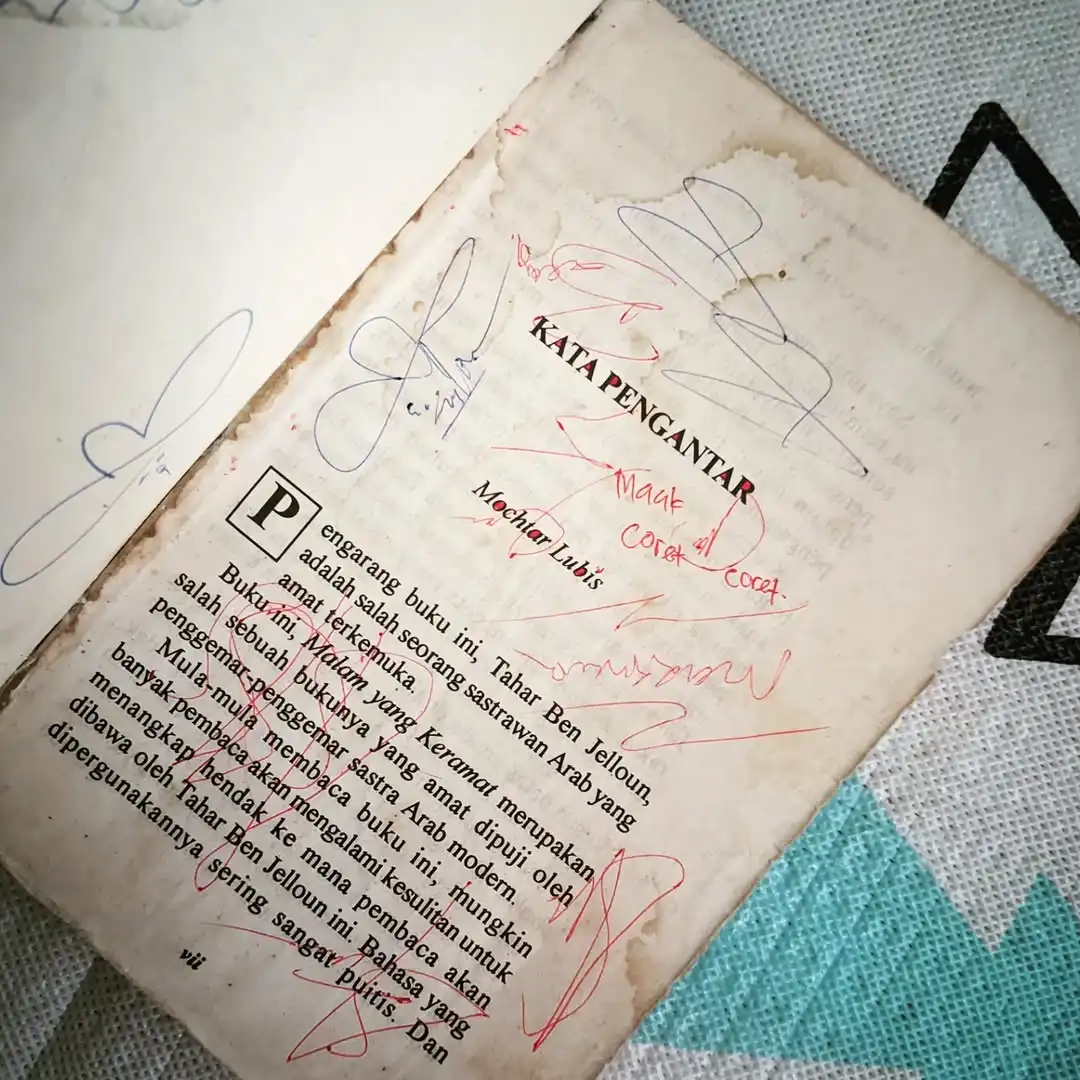 KATA PENGANTAR
Maak
coret
coret.
Mochtar Lubis
Pengarang buku ini, Tahar Ben Jelloun,
adalah salah seorang sastrawan Arab yang
amat terkemuka.
Buku ini, Malam yang Keramat merupakan
salah sebuah bukunya yang amat dipuji oleh
penggemar-penggemar sastra Arab modern.
Mula-mula membaca buku ini, mungkin
banyak pembaca akan mengalami kesulitan untuk
menangkap hendak ke mana pembaca akan
dibawa oleh Tahar Ben Jelloun ini. Bahasa yang
dipergunakannya sering sangat puitis. Dan
vii